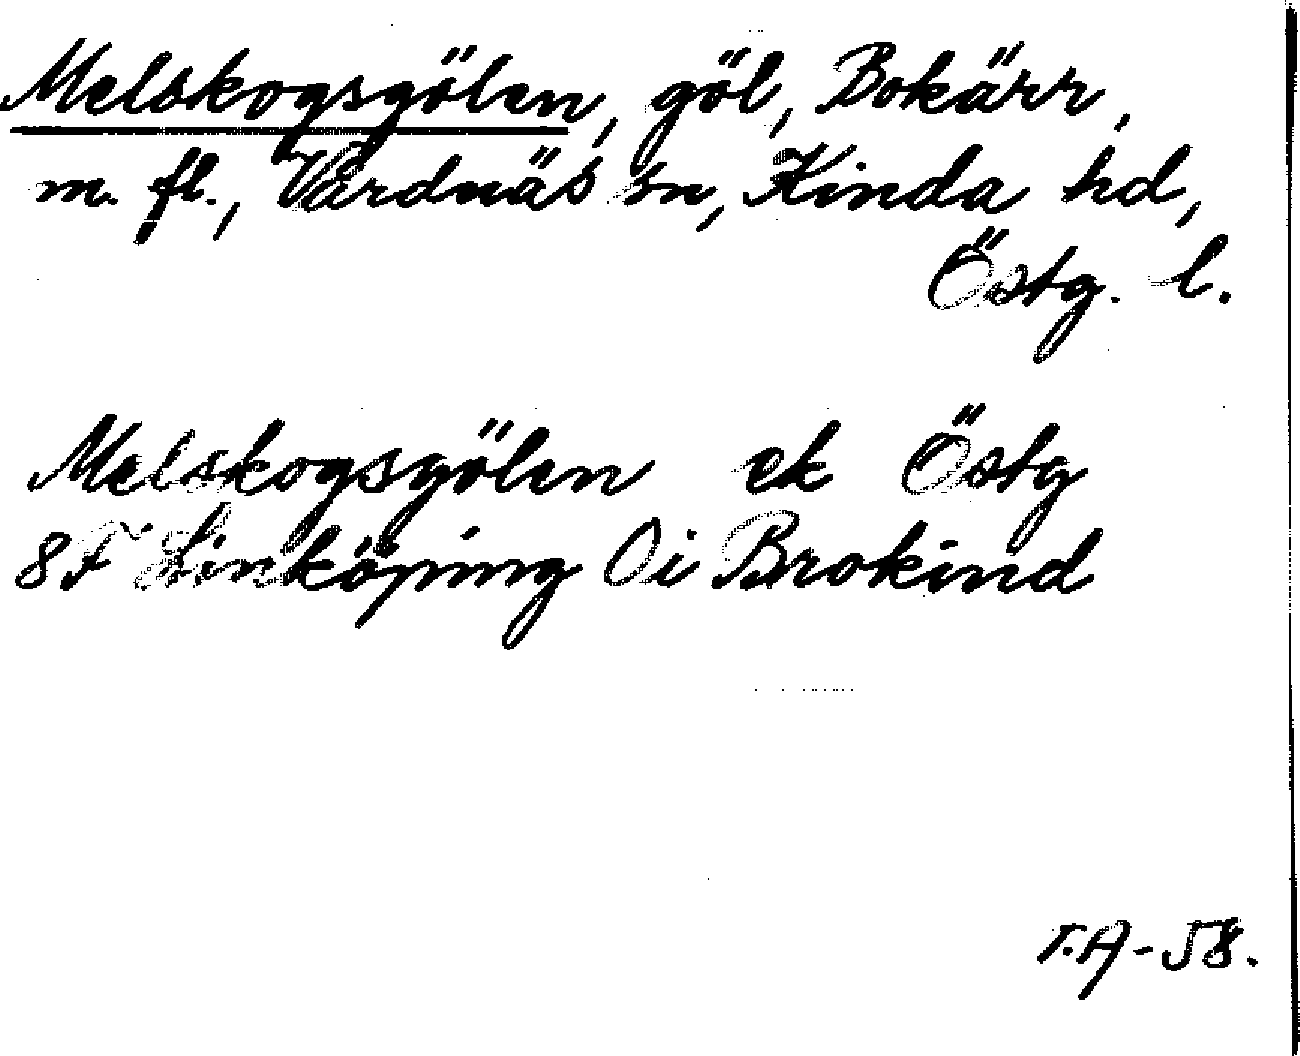 Melskogsgölen, göl, Bokärr,
m. fl., Vårdnäs sn, Kinda hd,
Östg. l.
Melskogsgölen ek Östg
8F Linköping Öi Brokind
T.A-58.